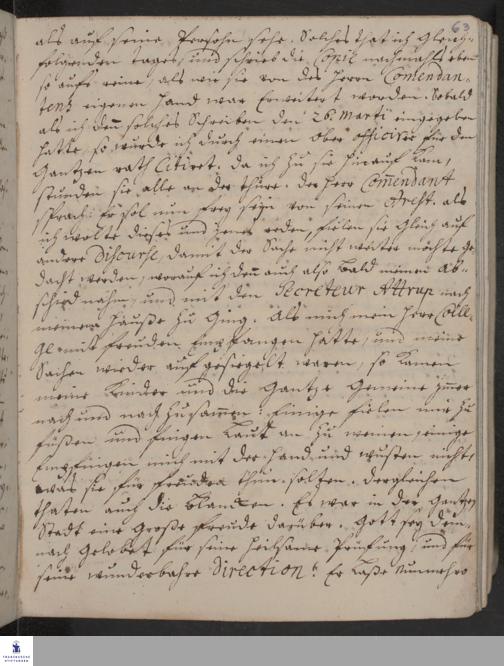 63
als auf seine Persohn sehe. Solches that ich gleich
folgenden tages, und schrieb die Copie nachmahls eben
so aufs reine, als wie sie von des Herrn Commendan-
tens eigenen Hand war erweitert worden. Sobald
als ich den solches Schreiben den 26. Martii eingegeben
hatte, so wurde ich durch einen Ober officirer für den
Gantzen rath Citiret. da ich zu sie hinauf kam,
stunden sie alle an der thüre. der Herr Commendant
sprach: Er sol nun frey seyn von seinen Arest. als
ich wolte dieses und jenes reden, fielen sie gleich auf
andere Discourse, damit der Sache nicht weiter möchte ge-
dacht werden, worauf ich denn auch also bald meinen Ab-
schied nahm, und mit den Secreteur Attrup nach
meinem Hauße zu ging. Als mich mein Herr Colle-
ge mit freuden empfangen hatte, und meine
Sachen wieder auf gesiegelt waren, so kamen
meine Kinder und die Gantze Gemeine immer
nach und nach zusammen: Einige fielen mir zu
füßen und fingen laut an zu weinen, einige
empfingen mich mit der Hand und wusten nicht,
was sie für freuden thun solten. dergleichen
thaten auch die Blancken. Es war in der Gantzen
Stadt eine große freude darüber. Gott sey dem-
nach gelobet für seine heilsame Prüfung, und für
seine wunderbahre Direction! Er laße nunmehro
FRANCKESCHE
STIFTUNGEN